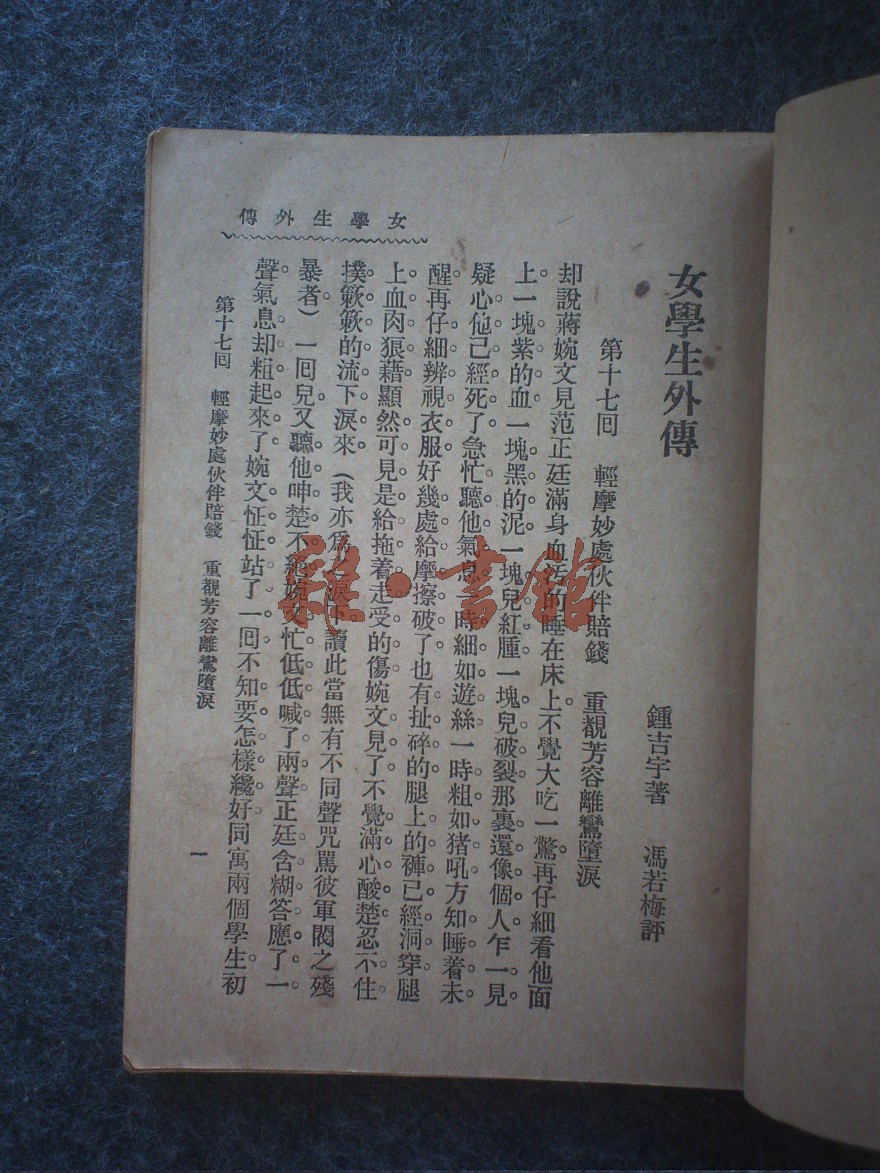 女學生外傳
女學生外傳
鍾吉宇著 馮若梅評
第十七回 輕摩妙處伙伴賠錢 重覩芳容離鸞墮淚
却說蔣婉文見范正廷滿身血污的睡在床上。不覺大吃一驚再仔細看他面
上一塊紫的血一塊黑的泥一塊兒紅腫一塊兒破裂那裏還像個人乍一見。
疑心他已經死了急忙聽他氣息一時細如遊絲一時粗如猪吼方知睡着未
醒再仔細辨視衣服好幾處給摩擦破了也有扯碎的腿上的褲已經洞穿腿
上血肉狼藉顯然可見是給拖着走受的傷婉文見了不覺滿心酸楚忍不住
撲簌簌的流下淚來(我亦爲之淚下讀此當無有不同聲咒罵彼軍閥之殘
暴者)一囘兒又聽他呻楚不絕婉文忙低低喊了兩聲正廷含糊答應了一
聲氣息却粗起來了婉文怔怔站了一囘不知要怎樣纔好同寓兩個學生初
第十七回 輕摩妙處伙伴賠錢 重覩芳容離鸞墮淚
一
雜·書館